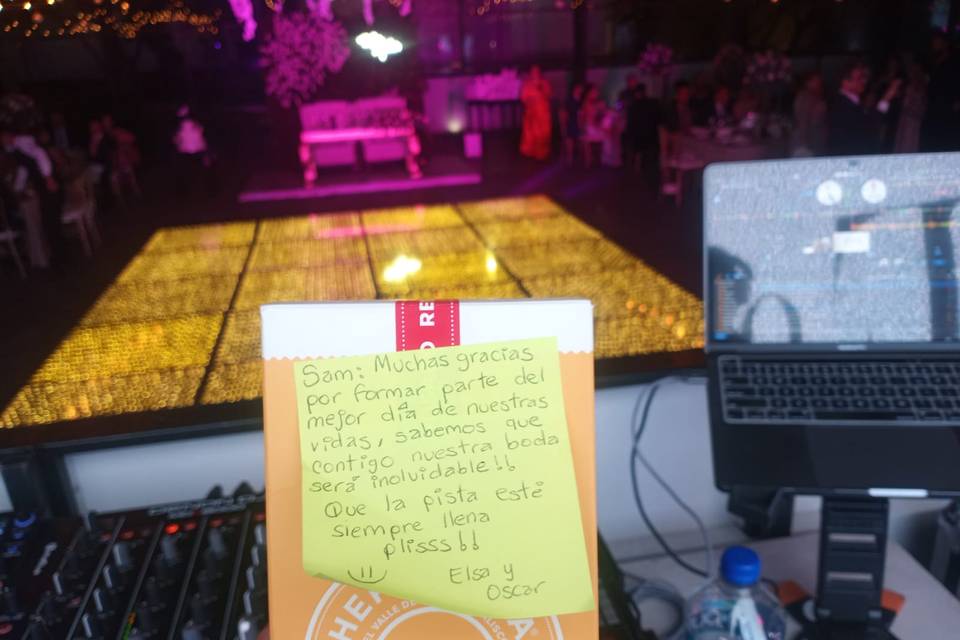 RE
Sam: Muchas gracias
por formar parte del
mejor día de nuestras
vidas, sabemos que
contigo nuestra boda
será inolvidable!!
Que la pista esté
siempre llena
plisss!!
Elsa y
Oscar
EL VALLE DE